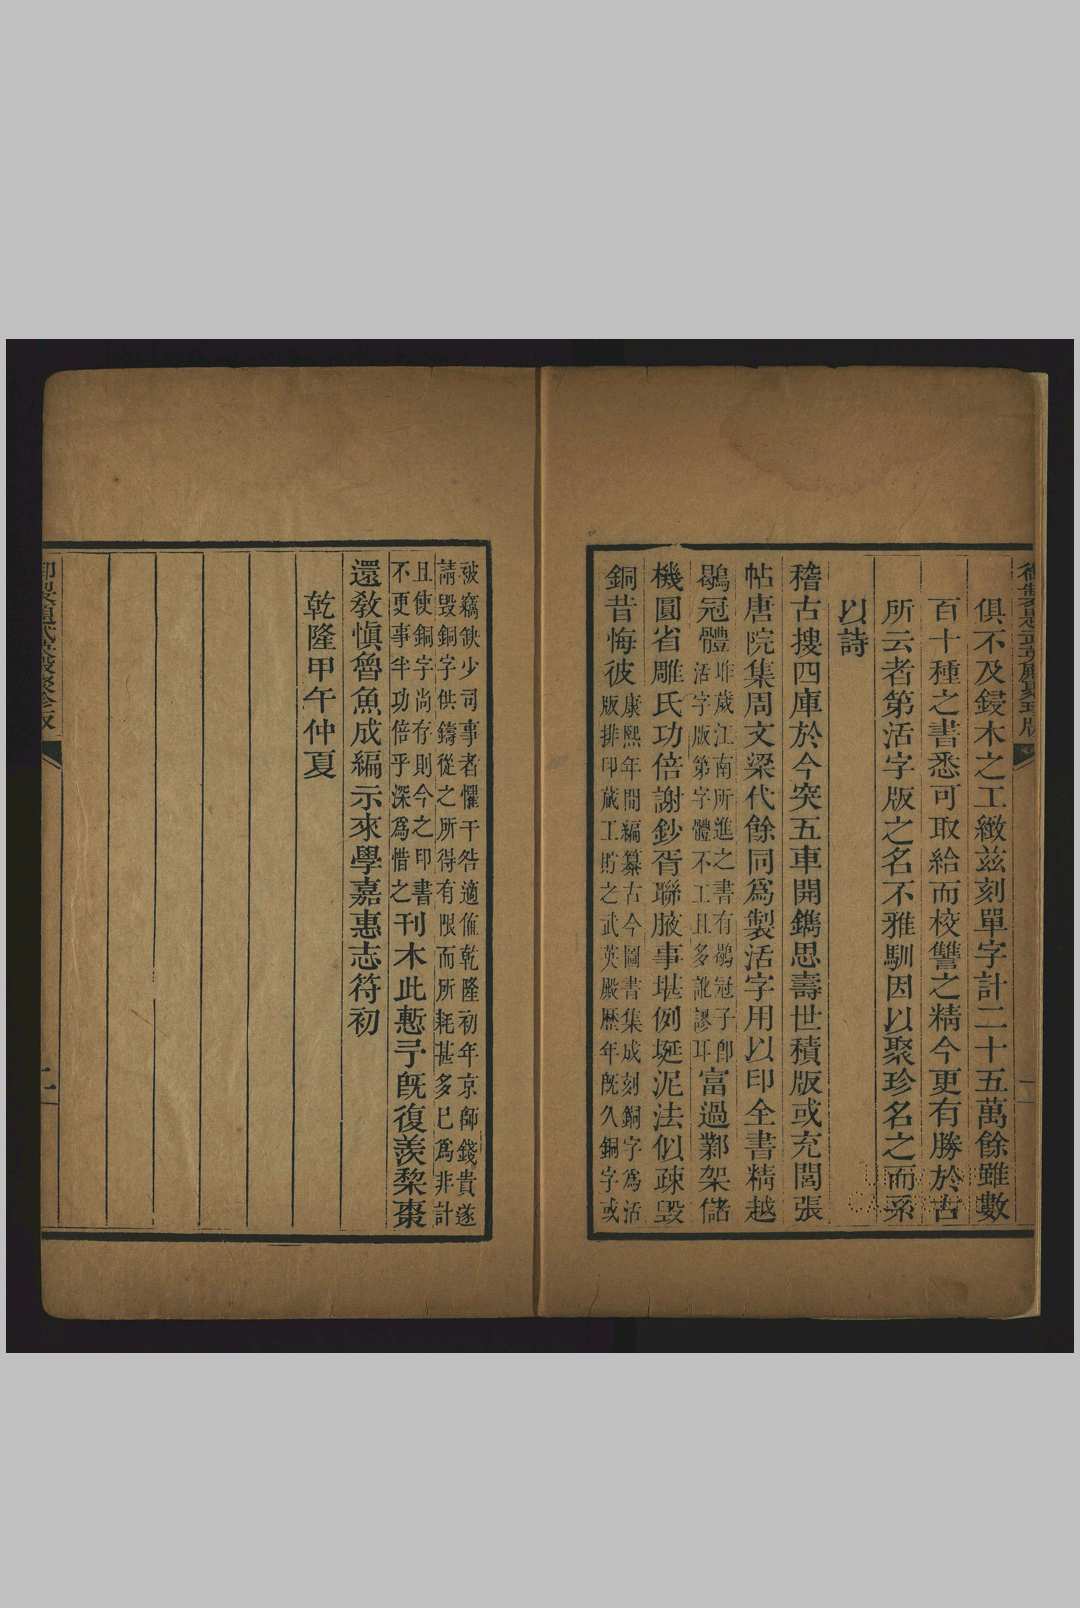 俱不及鋟木之工緻茲刻單字計二十五萬餘雖數
百十種之書悉可取給而校讐之精今更有勝於古
所云者第活字版之名不雅馴因以聚珍名之而系
以詩
稽古搜四庫於今突五車開鐫思壽世積版或充閭張
帖唐院集周文梁代餘同為製活字用以印全書精越
鶡冠體
昨歲江南所進之書有鶡冠子卽
活字版第字體不工且多訛謬耳
富過鄴架儲
機圓省雕氏功倍謝鈔胥聯腋事堪例埏泥法似疎毀
銅昔悔彼
康熙年間編纂古今圖書集成刻銅字為活
版排印蕆工貯之武英殿歷年旣久銅字或
被竊缺少司事者懼干咎適值乾隆初年京師錢貴遂
請毀銅字供鑄從之所得有限而所耗甚多已為非計
且使銅字尚存則今之印書
不更事半功倍乎深為惜之
刊木此慙予旣復羨棃棗
還敎慎魯魚成編示來學嘉惠志符初
乾隆甲午仲夏
御製題武英殿聚珍版
二